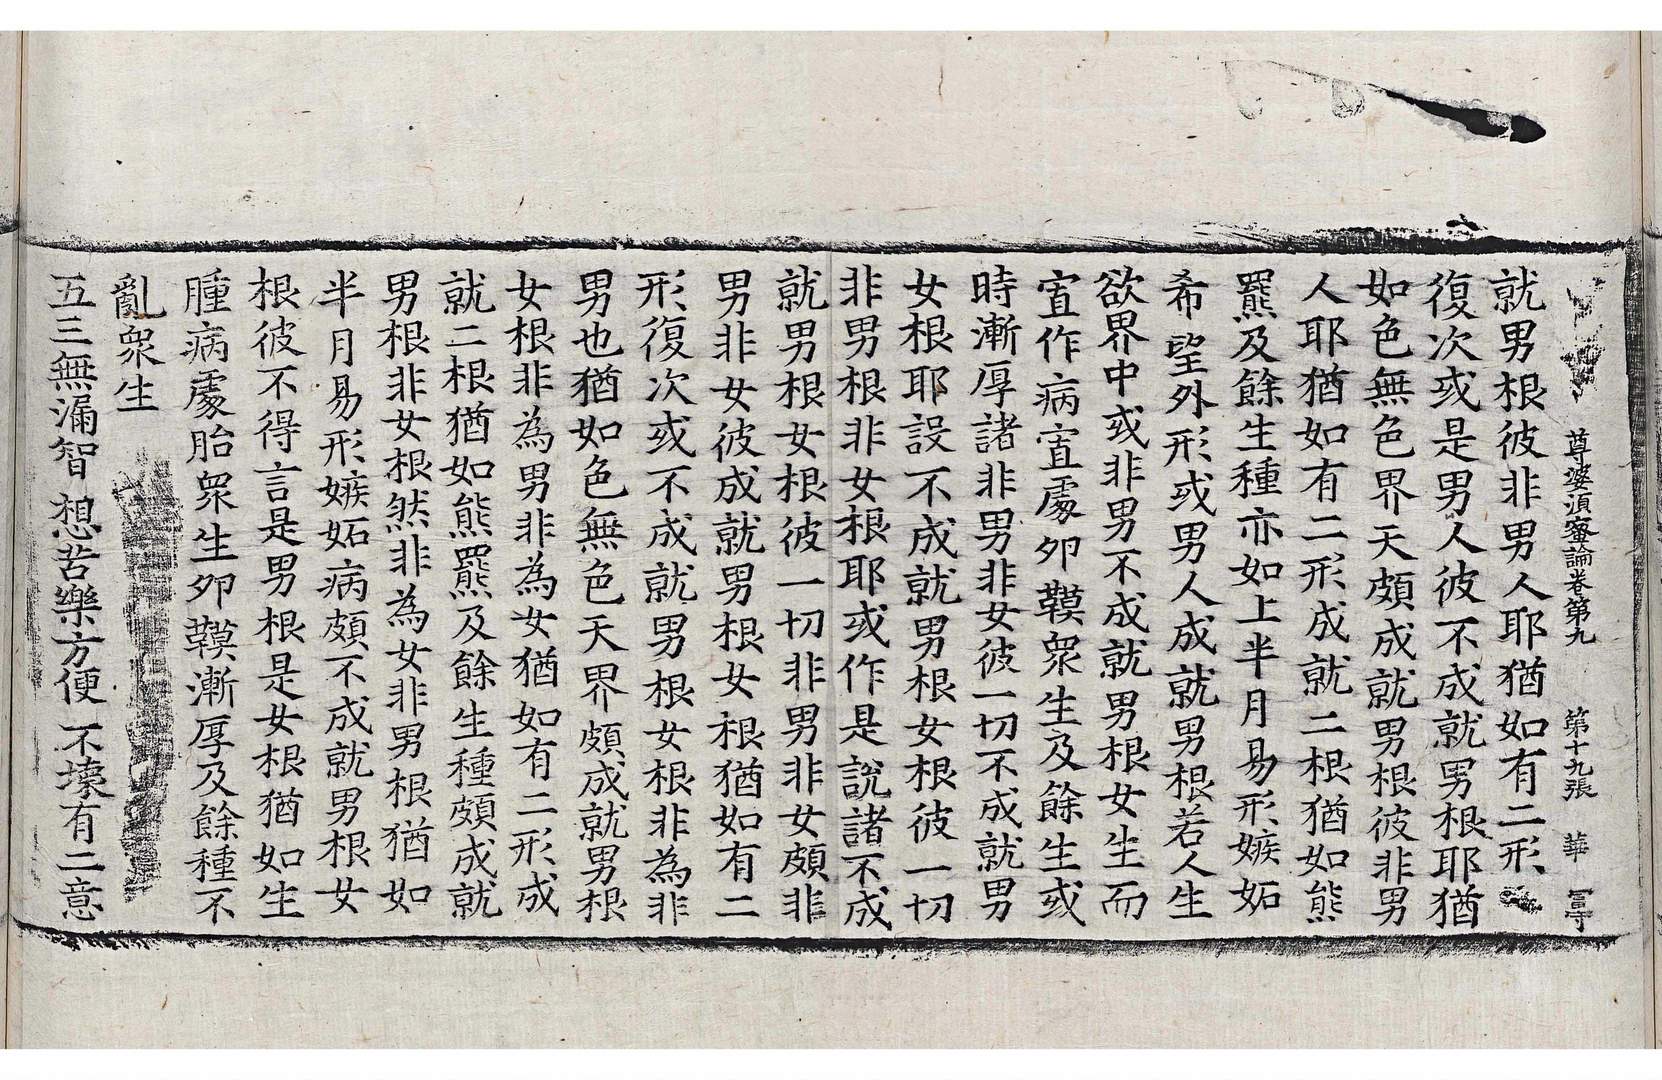 尊婆須蜜論卷第九 第十九張 華
就男根彼非男人耶猶如有二形
復次或是男人彼不成就男根耶猶
如色無色界天頗成就男根彼非男
人耶猶如有二形成就二根猶如熊
羆及餘生種亦如上半月易形嫉妬
希望外形或男人成就男根若人生
欲界中或非男不成就男根女生而
㝛作病㝛處卵鞕眾生及餘生或
時漸厚諸非男非女彼一切不成就男
女根耶設不成就男根女根彼一切
非男根非女根耶或作是說諸不成
就男根女根彼一切非男非女頗非
男非女彼成就男根女根猶如有二
形復次或不成就男根女根非為非
男也猶如色無色天界頗成就男根
女根非為男非為女猶如有二形成
就二根猶如熊羆及餘生種頗成就
男根非女根然非為女非男根猶如
半月易形嫉妬病頗不成就男根女
根彼不得言是男根是女根猶如生
腫病處胎眾生卵鞕漸厚及餘種不
亂眾生
五三無漏智 想苦樂方便 不壞有二意